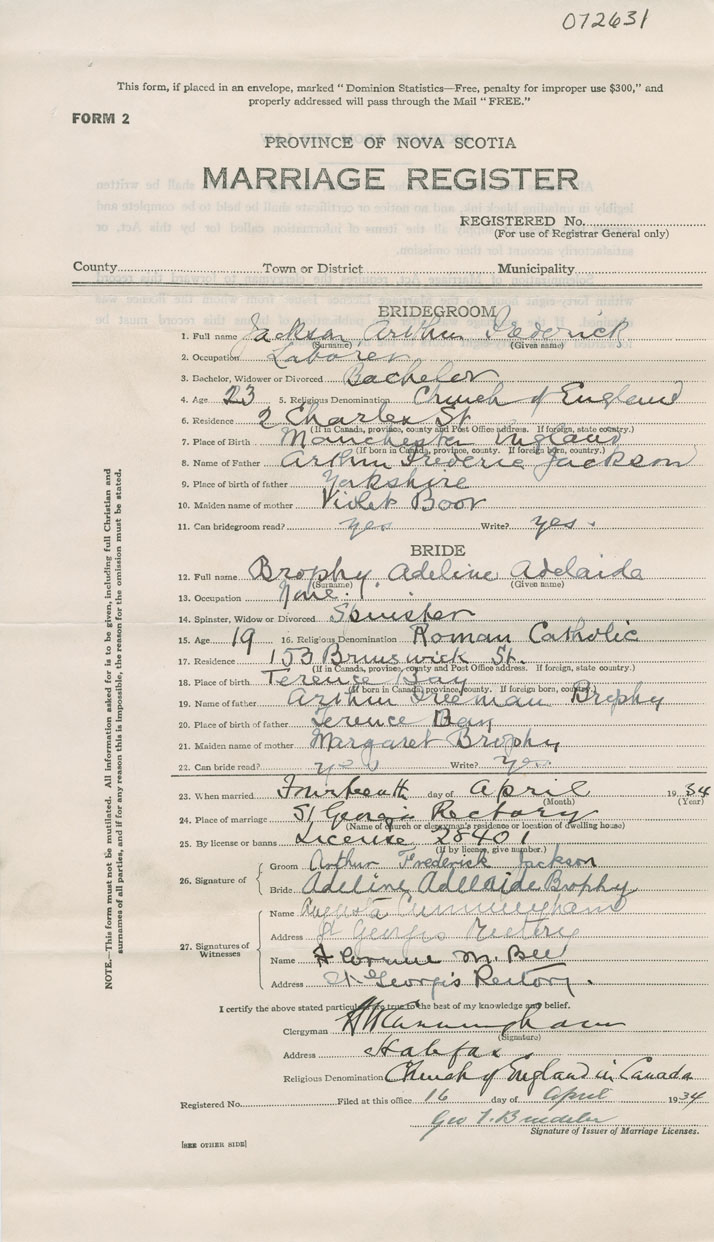 072631
This form, if placed in an envelope, marked “Dominion Statistics—Free, penalty for improper use $300,” and
properly addressed will pass through the Mail “FREE.”
FORM 2
PROVINCE OF NOVA SCOTIA
MARRIAGE REGISTER
REGISTERED No.
(For use of Registrar General only)
County Town or District Municipality
BRIDEGROOM
1. Full name Jackson Arthur Frederick
(Surname) (Given name)
2. Occupation Laborer
3. Bachelor, Widower or Divorced Bachelor
4. Age 23 5. Religious Denomination Church of England
6. Residence 2 Charles St.
(If in Canada, province, county and Post Office address. If foreign, state country.)
7. Place of Birth Manchester England
(If born in Canada, province, county. If foreign born, country.)
8. Name of Father Arthur Frederic Jackson
9. Place of birth of father Yorkshire
10. Maiden name of mother Violet Boor
11. Can bridegroom read? yes Write? yes.
BRIDE
12. Full name Brophy, Adeline Adelaide
(Surname) (Given name)
13. Occupation None.
14. Spinster, Widow or Divorced Spinster
15. Age 19 16. Religious Denomination Roman Catholic
17. Residence 153 Brunswick St.
(If in Canada, province, county and Post Office address. If foreign, state country.)
18. Place of birth Terence Bay
(If born in Canada, province, county. If foreign born, country.)
19. Name of father Arthur Freeman Brophy
20. Place of birth of father Terence Bay
21. Maiden name of mother Margaret Brophy
22. Can bride read? yes Write? yes
23. When married Fourteenth day of April 1934
(Month) (Year)
24. Place of marriage St Georges Rectory
(Name of church or clergyman's residence or location of dwelling house)
25. By license or banns License 28401
(If by license, give number.)
26. Signature of
Groom Arthur Frederick Jackson
Bride Adeline Adelaide Brophy
27. Signatures of Witnesses
Name Augusta Cunningham
Address St Georges Rectory
Name Florence M. Bell
Address St George's Rectory.
I certify the above stated particulars are true to the best of my knowledge and belief.
Clergyman Cunningham
(Signature)
Address Halifax.
Religious Denomination Church of England in Canada
Registered No. Filed at this office 16 day of April 1934
Geo T.
Signature of Issuer of Marriage Licenses.
[SEE OTHER SIDE]
NOTE.—This form must not be mutilated. All information asked for is to be given, including full Christian and
surnames of all parties, and if for any reason this is impossible, the reason for the omission must be stated.